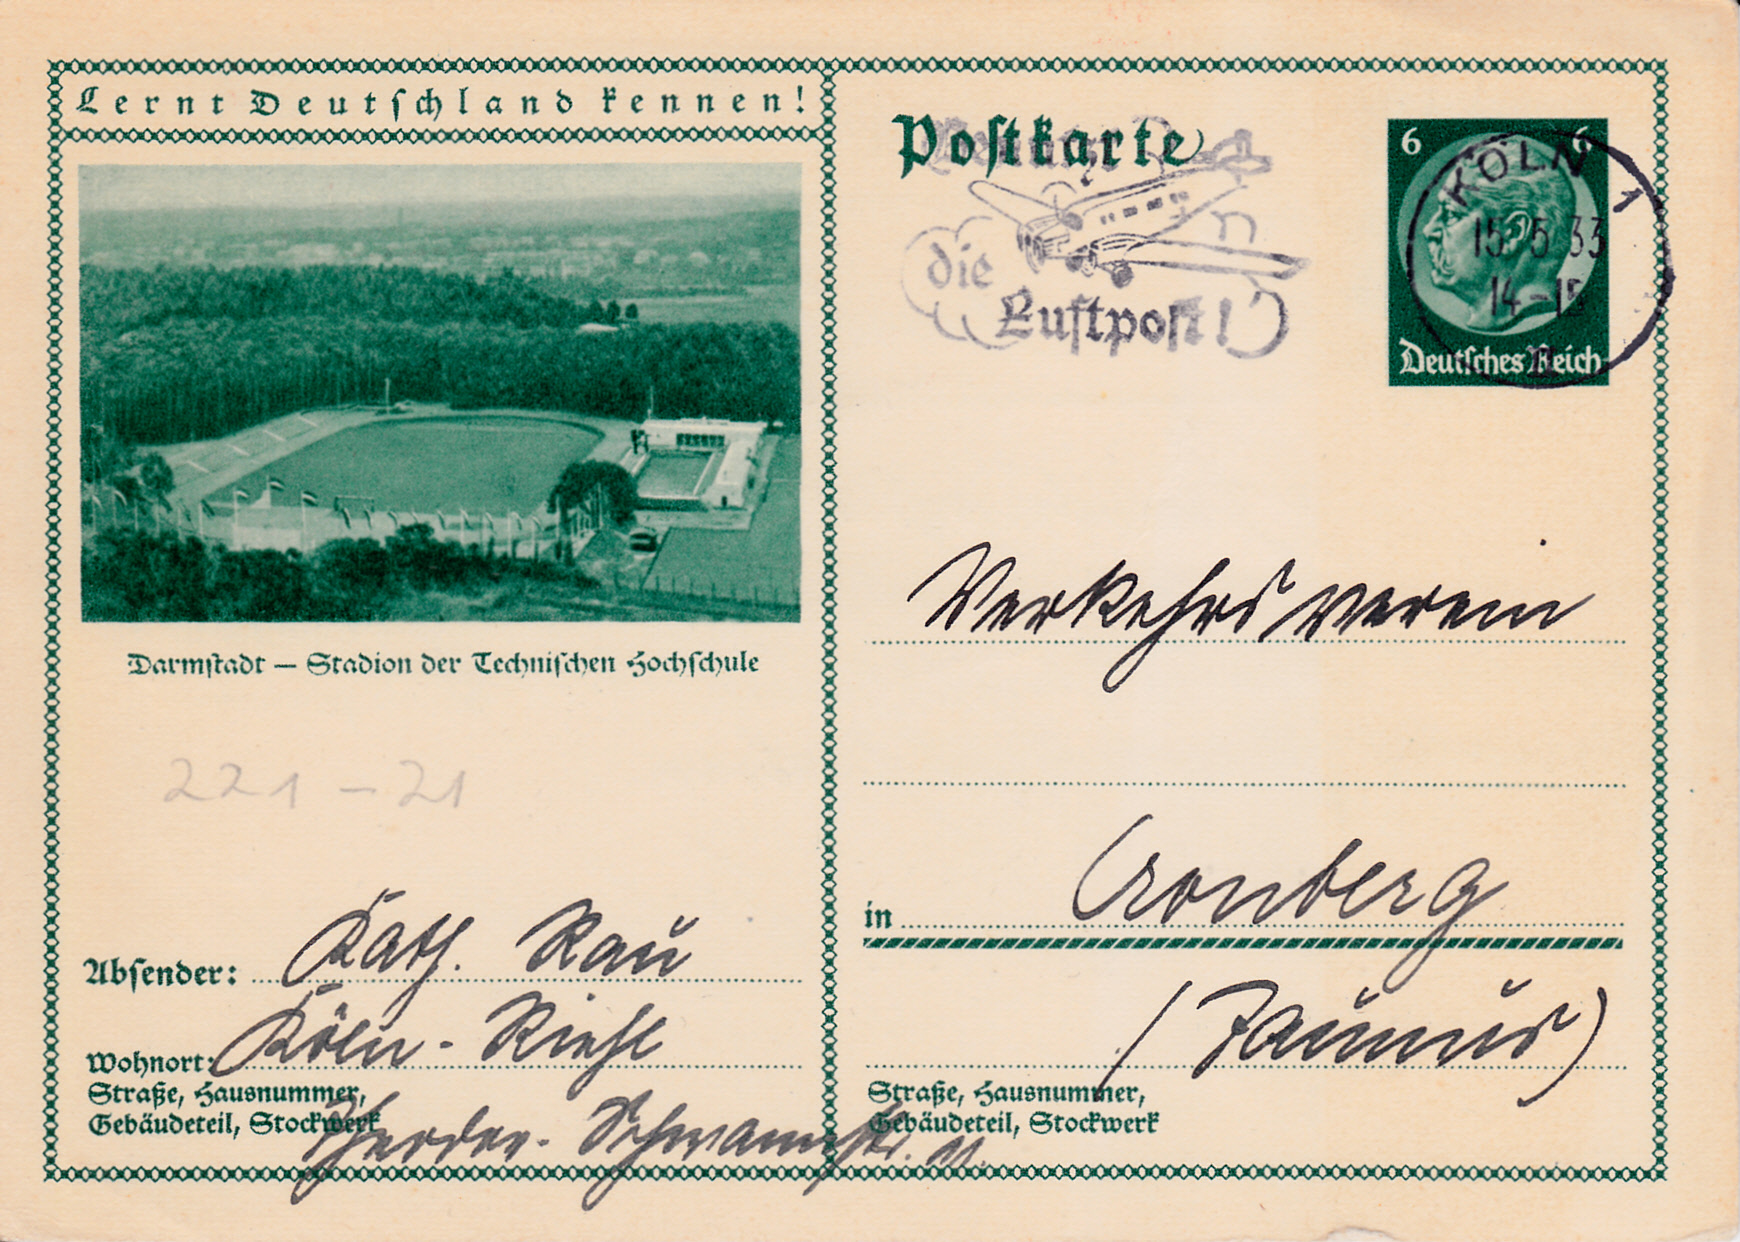 Lernt Deutschland kennen!
Darmstadt — Stadion der Technischen Hochschule
221 – 21
Absender: Kath. Rau
Wohnort: Köln - Riehl
Straße, Hausnummer,
Gebäudeteil, Stockwerk
Schwannstr.
Postkarte
die
Luftpost!
6 6
KÖLN 1
15.5.33
14-15
Deutsches Reich
Verkehrsverein
in Cronberg
(Taunus)
Straße, Hausnummer,
Gebäudeteil, Stockwerk